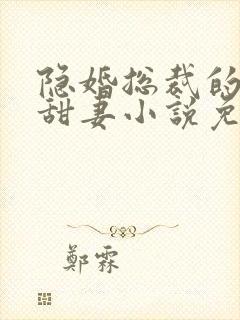 隐婚总裁的
甜妻小说免
鄭霖